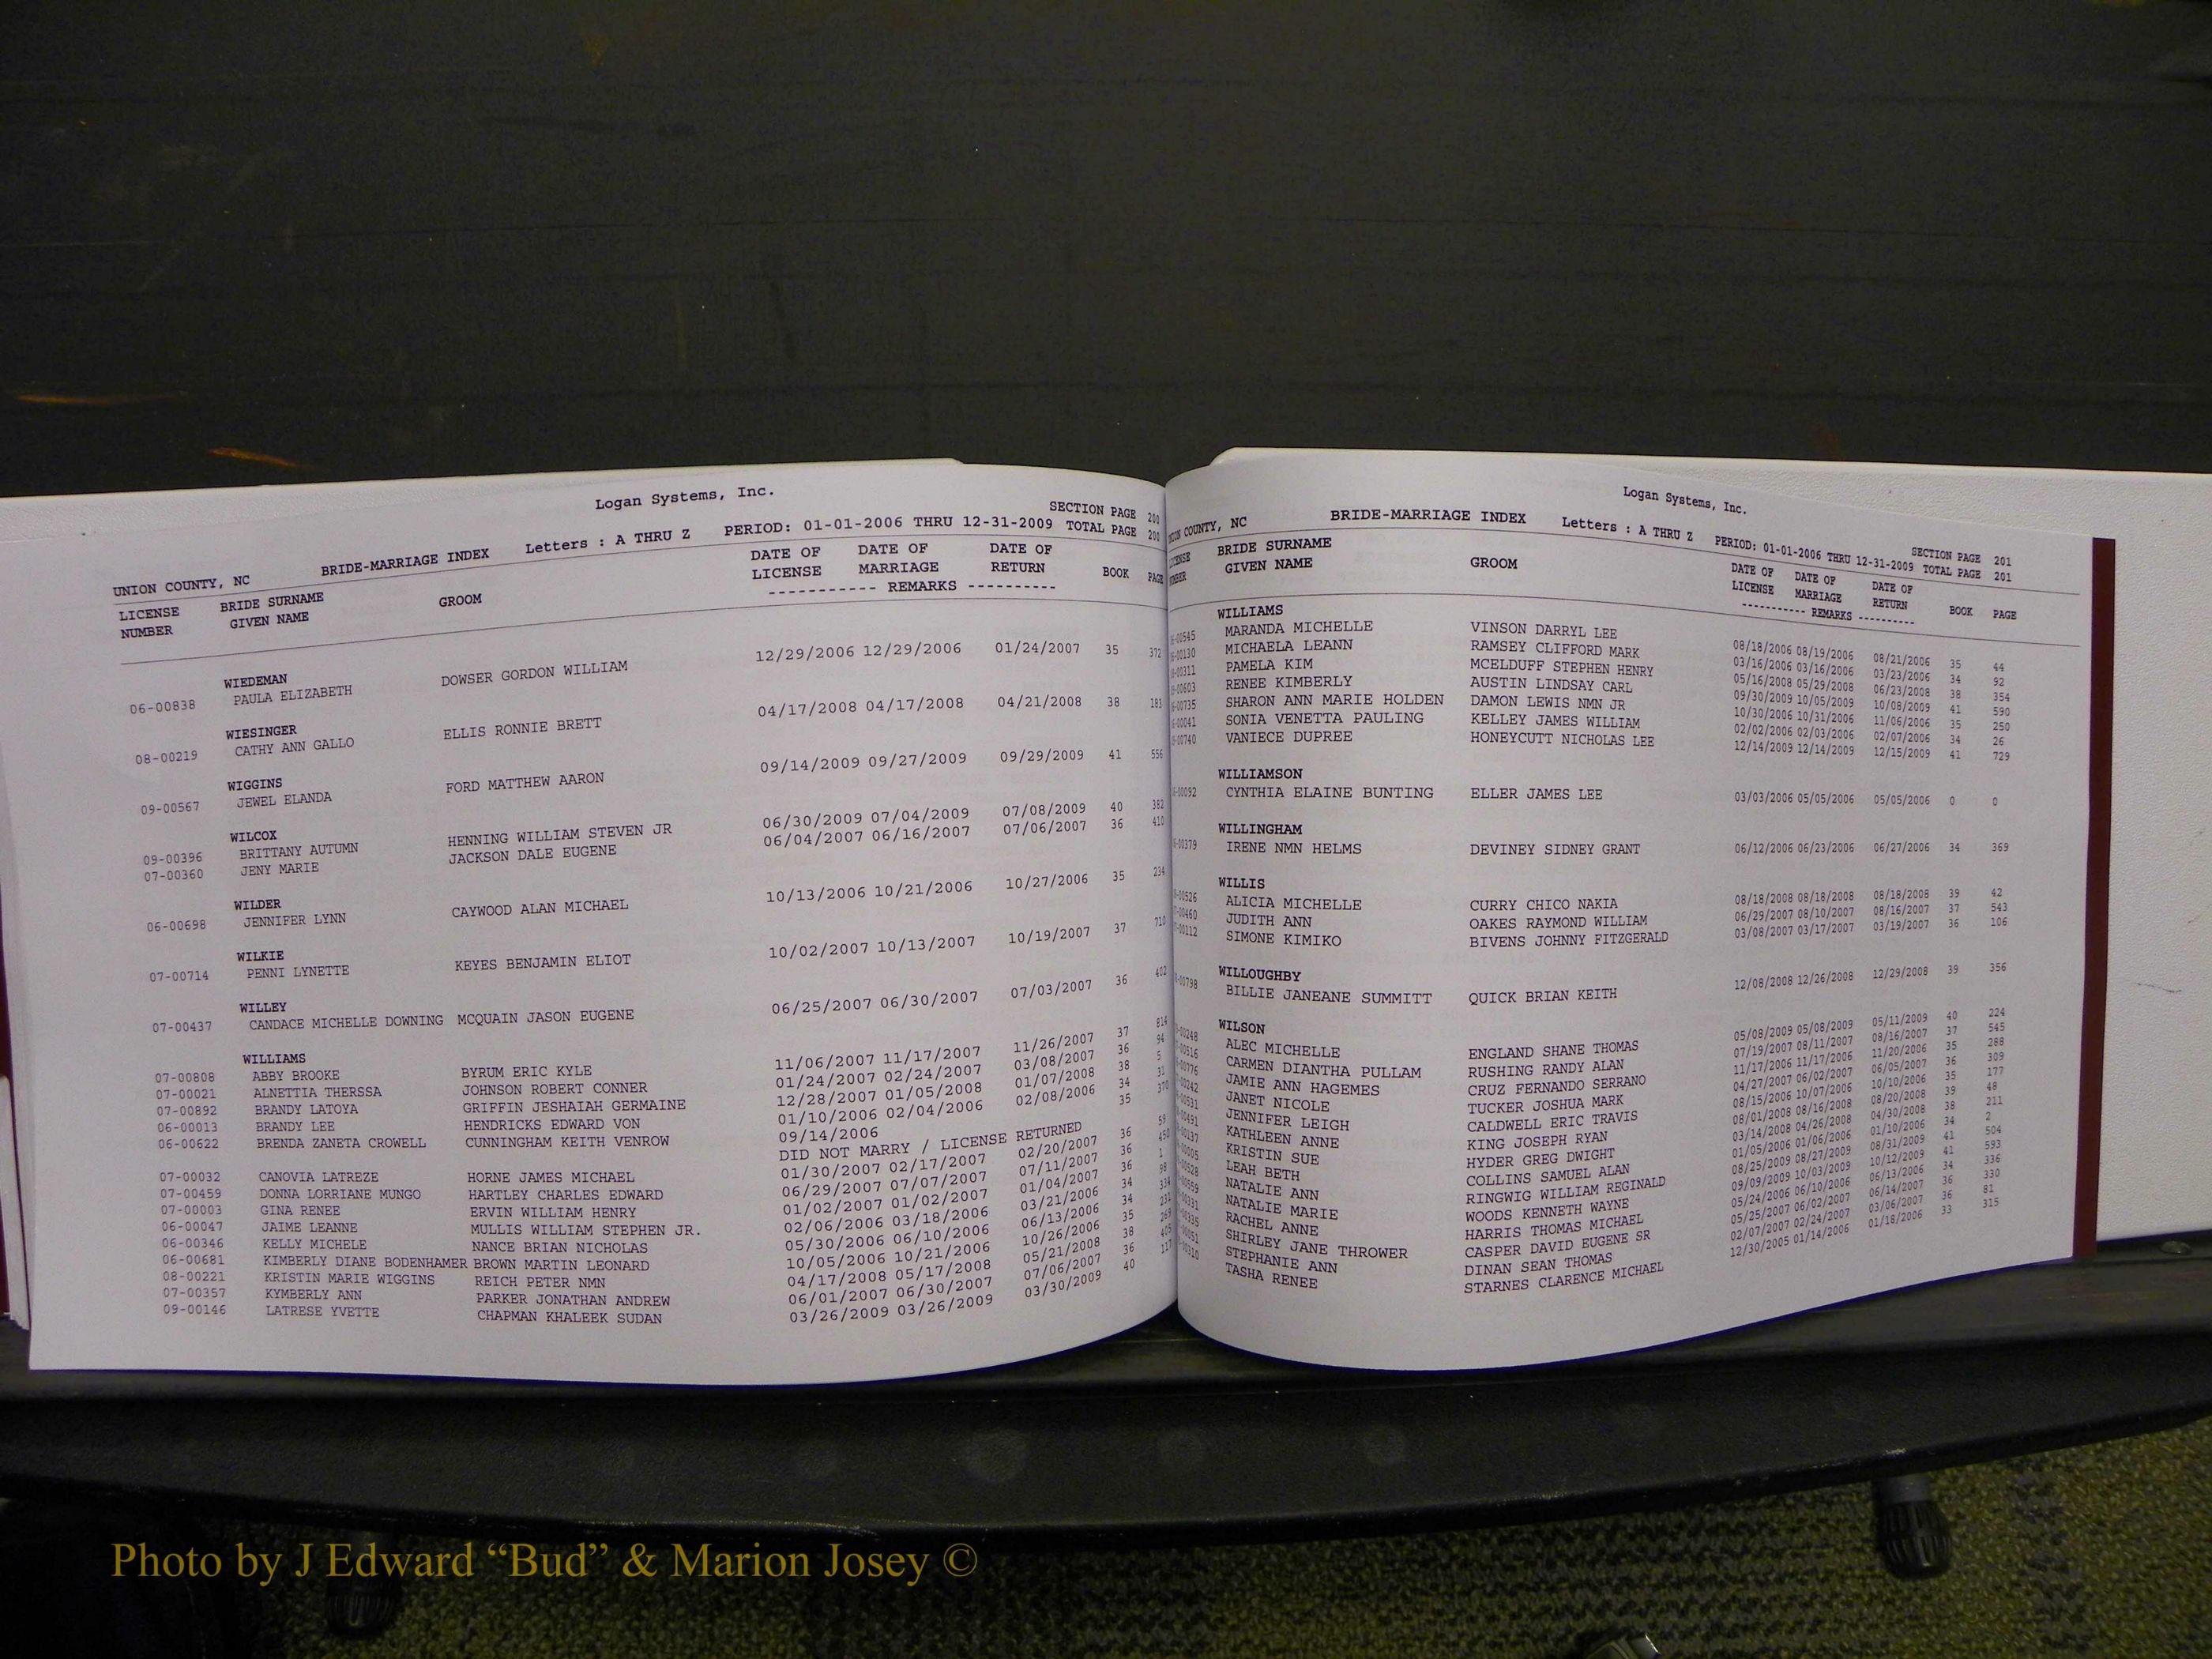 Logan Systems, Inc.
SECTION PAGE 200
UNION COUNTY, NC BRIDE-MARRIAGE INDEX Letters : A THRU Z PERIOD: 01-01-2006 THRU 12-31-2009 TOTAL PAGE 200
LICENSE BRIDE SURNAME GROOM DATE OF DATE OF DATE OF BOOK PAGE
NUMBER GIVEN NAME LICENSE MARRIAGE RETURN
----------- REMARKS -----------
WIEDEMAN
06-00838 PAULA ELIZABETH DOWSER GORDON WILLIAM 12/29/2006 12/29/2006 01/24/2007 35 372
WIESINGER
08-00219 CATHY ANN GALLO ELLIS RONNIE BRETT 04/17/2008 04/17/2008 04/21/2008 38 183
WIGGINS
09-00567 JEWEL ELANDA FORD MATTHEW AARON 09/14/2009 09/27/2009 09/29/2009 41 556
WILCOX
09-00396 BRITTANY AUTUMN HENNING WILLIAM STEVEN JR 06/30/2009 07/04/2009 07/08/2009 40 382
07-00360 JENY MARIE JACKSON DALE EUGENE 06/04/2007 06/16/2007 07/06/2007 36 410
WILDER
06-00698 JENNIFER LYNN CAYWOOD ALAN MICHAEL 10/13/2006 10/21/2006 10/27/2006 35 234
WILKIE
07-00714 PENNI LYNETTE KEYES BENJAMIN ELIOT 10/02/2007 10/13/2007 10/19/2007 37 710
WILLEY
07-00437 CANDACE MICHELLE DOWNING MCQUAIN JASON EUGENE 06/25/2007 06/30/2007 07/03/2007 36 402
WILLIAMS
07-00808 ABBY BROOKE BYRUM ERIC KYLE 11/06/2007 11/17/2007 11/26/2007 37 814
07-00021 ALNETTIA THERSSA JOHNSON ROBERT CONNER 01/24/2007 02/24/2007 03/08/2007 36 94
07-00892 BRANDY LATOYA GRIFFIN JESHAIAH GERMAINE 12/28/2007 01/05/2008 01/07/2008 38 5
06-00013 BRANDY LEE HENDRICKS EDWARD VON 01/10/2006 02/04/2006 02/08/2006 34 31
06-00622 BRENDA ZANETA CROWELL CUNNINGHAM KEITH VENROW 09/14/2006 35 370
DID NOT MARRY / LICENSE RETURNED
07-00032 CANOVIA LATREZE HORNE JAMES MICHAEL 01/30/2007 02/17/2007 02/20/2007 36 59
07-00459 DONNA LORRIANE MUNGO HARTLEY CHARLES EDWARD 06/29/2007 07/07/2007 07/11/2007 36 450
07-00003 GINA RENEE ERVIN WILLIAM HENRY 01/02/2007 01/02/2007 01/04/2007 36 1
06-00047 JAIME LEANNE MULLIS WILLIAM STEPHEN JR. 02/06/2006 03/18/2006 03/21/2006 34 98
06-00346 KELLY MICHELE NANCE BRIAN NICHOLAS 05/30/2006 06/10/2006 06/13/2006 34 334
06-00681 KIMBERLY DIANE BODENHAMER BROWN MARTIN LEONARD 10/05/2006 10/21/2006 10/26/2006 35 231
08-00221 KRISTIN MARIE WIGGINS REICH PETER NMN 04/17/2008 05/17/2008 05/21/2008 38 265
07-00357 KYMBERLY ANN PARKER JONATHAN ANDREW 06/01/2007 06/30/2007 07/06/2007 36 405
09-00146 LATRESE YVETTE CHAPMAN KHALEEK SUDAN 03/26/2009 03/26/2009 03/30/2009 40 117
Logan Systems, Inc.
SECTION PAGE 201
COUNTY, NC BRIDE-MARRIAGE INDEX Letters : A THRU Z PERIOD: 01-01-2006 THRU 12-31-2009 TOTAL PAGE 201
BRIDE SURNAME GROOM DATE OF DATE OF DATE OF BOOK PAGE
GIVEN NAME LICENSE MARRIAGE RETURN
----------- REMARKS ----------
WILLIAMS
-00545 MARANDA MICHELLE VINSON DARRYL LEE 08/18/2006 08/19/2006 08/21/2006 35 44
-00130 MICHAELA LEANN RAMSEY CLIFFORD MARK 03/16/2006 03/16/2006 03/23/2006 34 92
-00311 PAMELA KIM MCELDUFF STEPHEN HENRY 05/16/2008 05/29/2008 06/23/2008 38 354
-00603 RENEE KIMBERLY AUSTIN LINDSAY CARL 09/30/2009 10/05/2009 10/08/2009 41 590
-00735 SHARON ANN MARIE HOLDEN DAMON LEWIS NMN JR 10/30/2006 10/31/2006 11/06/2006 35 250
-00041 SONIA VENETTA PAULING KELLEY JAMES WILLIAM 02/02/2006 02/03/2006 02/07/2006 34 26
-00740 VANIECE DUPREE HONEYCUTT NICHOLAS LEE 12/14/2009 12/14/2009 12/15/2009 41 729
WILLIAMSON
-00092 CYNTHIA ELAINE BUNTING ELLER JAMES LEE 03/03/2006 05/05/2006 05/05/2006 0 0
WILLINGHAM
-00379 IRENE NMN HELMS DEVINEY SIDNEY GRANT 06/12/2006 06/23/2006 06/27/2006 34 369
WILLIS
-00526 ALICIA MICHELLE CURRY CHICO NAKIA 08/18/2008 08/18/2008 08/18/2008 39 42
-00460 JUDITH ANN OAKES RAYMOND WILLIAM 06/29/2007 08/10/2007 08/16/2007 37 543
-00112 SIMONE KIMIKO BIVENS JOHNNY FITZGERALD 03/08/2007 03/17/2007 03/19/2007 36 106
WILLOUGHBY
-00798 BILLIE JANEANE SUMMITT QUICK BRIAN KEITH 12/08/2008 12/26/2008 12/29/2008 39 356
WILSON
-00248 ALEC MICHELLE ENGLAND SHANE THOMAS 05/08/2009 05/08/2009 05/11/2009 40 224
-00516 CARMEN DIANTHA PULLAM RUSHING RANDY ALAN 07/19/2007 08/11/2007 08/16/2007 37 545
-00776 JAMIE ANN HAGEMES CRUZ FERNANDO SERRANO 11/17/2006 11/17/2006 11/20/2006 35 288
-00242 JANET NICOLE TUCKER JOSHUA MARK 04/27/2007 06/02/2007 06/05/2007 36 309
-00531 JENNIFER LEIGH CALDWELL ERIC TRAVIS 08/15/2006 10/07/2006 10/10/2006 35 177
-00491 KATHLEEN ANNE KING JOSEPH RYAN 08/01/2008 08/16/2008 08/20/2008 39 48
-00137 KRISTIN SUE HYDER GREG DWIGHT 03/14/2008 04/26/2008 04/30/2008 38 211
-00005 LEAH BETH COLLINS SAMUEL ALAN 01/05/2006 01/06/2006 01/10/2006 34 2
-00528 NATALIE ANN RINGWIG WILLIAM REGINALD 08/25/2009 08/27/2009 08/31/2009 41 504
-00559 NATALIE MARIE WOODS KENNETH WAYNE 09/09/2009 10/03/2009 10/12/2009 41 593
-00331 RACHEL ANNE HARRIS THOMAS MICHAEL 05/24/2006 06/10/2006 06/13/2006 34 336
-00335 SHIRLEY JANE THROWER CASPER DAVID EUGENE SR 05/25/2007 06/02/2007 06/14/2007 36 330
-00051 STEPHANIE ANN DINAN SEAN THOMAS 02/07/2007 02/24/2007 03/06/2007 36 81
-00310 TASHA RENEE STARNES CLARENCE MICHAEL 12/30/2005 01/14/2006 01/18/2006 33 315
Photo by J Edward “Bud” & Marion Josey ©